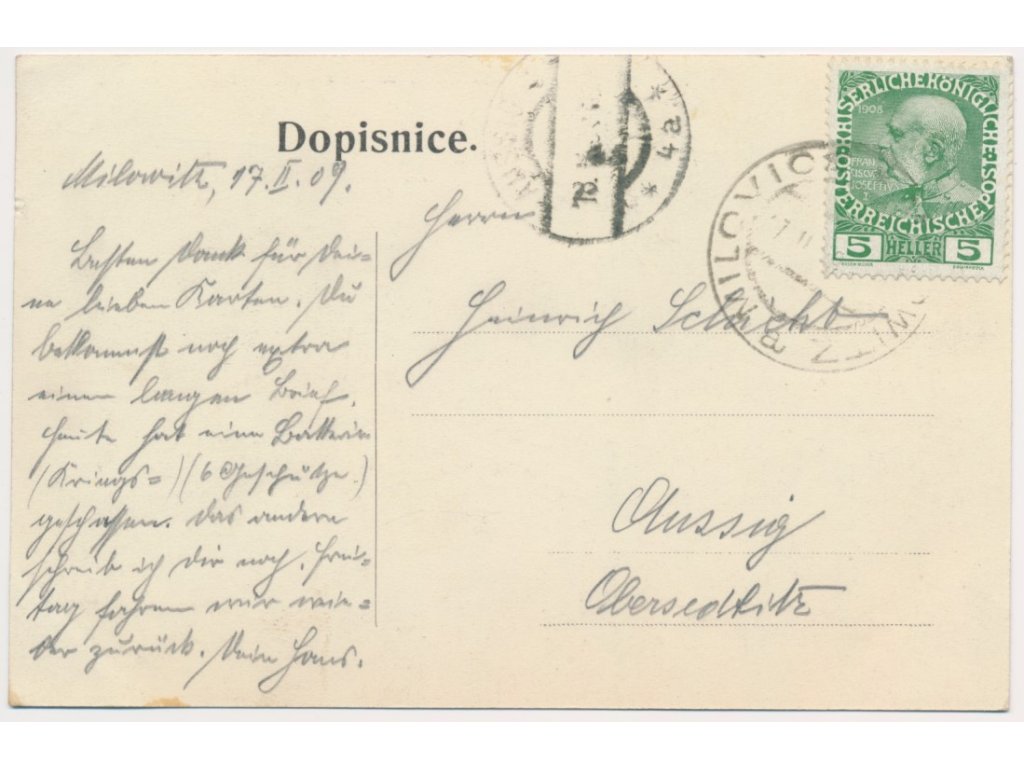 Dopisnice.
Milowitz, 17. II. 09.
Besten Dank für Dei-
ne lieben Karten. Du
bekommst noch extra
einen langen Brief.
Heute hat eine Batterie
(Kriegs=) (6 Geschütze.)
geschossen. Das andere
schreib ich Dir noch. Frei-
tag fahren wir wie=
der zurück. Dein Hans.
Herrn
Heinrich Schicht
Aussig
Obersedlitz
* 4a *
MILOVIC
MILOWITZ
KAISERLICHE KÖNIGLICHE
ÖSTERREICHISCHE POST
1908
FRAN
CISCVS
JOSEPH
I
5 HELLER 5